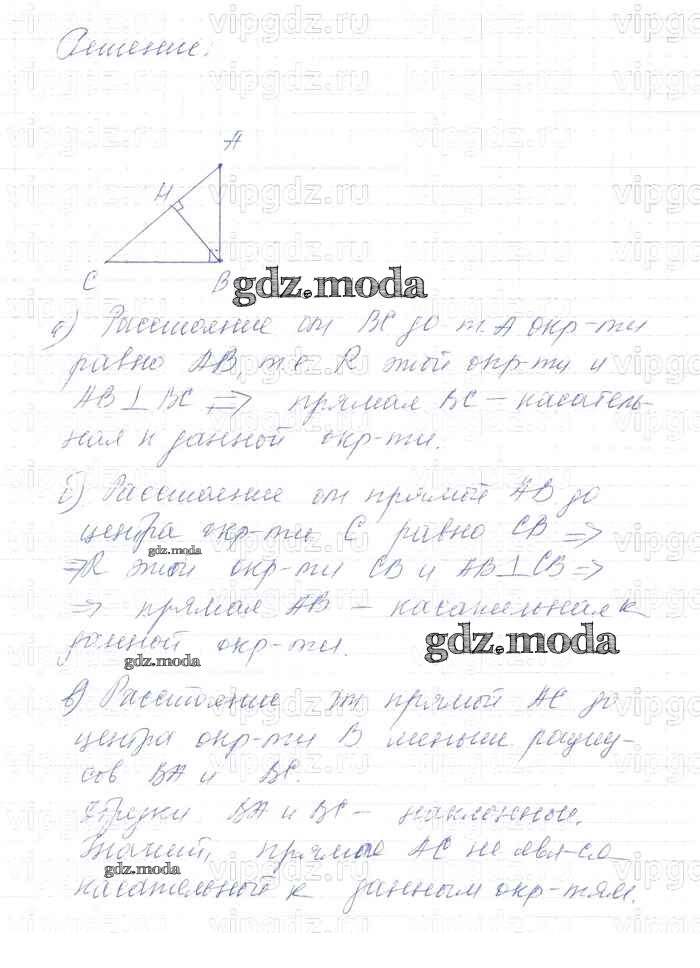 Решение:
A
H
C
B
gdz.moda
а) Расстояние от BC до т. A окр-ти
равно AB, т.е R этой окр-ти и
AB ⊥ BC ⇒ прямая BC – касатель-
ная к данной окр-ти.
б) Расстояние от прямой AB до
центра окр-ти C равно CB ⇒
gdz.moda
⇒ R этой окр-ти CB и AB ⊥ CB ⇒
⇒ прямая AB – касательная к
данной окр-ти.
gdz.moda
gdz.moda
в) Расстояние от прямой AC до
центра окр-ти B меньше радиу-
сов BA и BC.
Отрезки BA и BC – наклонные.
Значит, прямая AC не явл-ся
gdz.moda
касательной к данным окр-тям.
vipgdz.ru